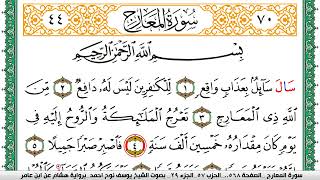 ٧٠ سُورَةُ الْمَعَارِجِ ٤٤
بِسْمِ اللَّهِ الرَّحْمَٰنِ الرَّحِيمِ
سَالَ سَآئِلُۢ بِعَذَابٖ وَاقِعٖ ١ لِّلۡكَٰفِرِينَ لَيۡسَ لَهُۥ دَافِعٞ ٢ مِّنَ
ٱللَّهِ ذِي ٱلۡمَعَارِجِ ٣ تَعۡرُجُ ٱلۡمَلَٰٓئِكَةُ وَٱلرُّوحُ إِلَيۡهِ فِي
يَوۡمٖ كَانَ مِقۡدَارُهُۥ خَمۡسِينَ أَلۡفَ سَنَةٖ ٤ فَٱصۡبِرۡ صَبۡرٗا جَمِيلًا ٥
سورة المعارج . الصفحة ٥٦٨ ... الحزب ٥٧ . الجزء ٢٩ . بصوت الشيخ يوسف نوح احمد . برواية هشام عن ابن عامر